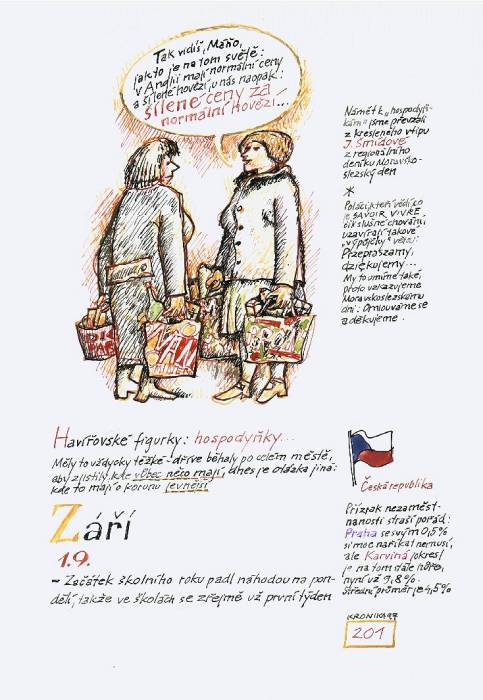 Tak vidíš, Máňo,
jak to je na tom světě:
v Anglii mají normální ceny
a šílené hovězí, u nás naopak:
šílené ceny za
normální hovězí...
Námět k „hospodyň-
kám" jsme převzali
z kresleného vtipu
J. Šmídové
z regionálního
deníku Moravsko-
slezský den
*
Poláci, kteří vědí co
je SAVOIR VIVRE
čili slušné chování,
uzavírají takové
„výpůjčky" větou:
Przepraszamy,
dziękujemy...
My to umíme také,
proto vzkazujeme
Moravskoslezskému
dni: Omlouváme se
a děkujeme.
Havířovské figurky: hospodyňky...
Měly to vždycky těžké - dříve běhaly po celém městě,
aby zjistily, kde vůbec něco mají, dnes je otázka jiná:
kde to mají o korunu levnější
Česká republika
Přízrak nezaměst-
nanosti straší pořád:
Praha se svým 0,5%
si moc naříkat nemusí,
ale Karviná (okres)
je na tom stále hůře,
nyní už 9,8%.
Střední průměr je 4,5%
Září
1.9.
- Začátek školního roku padl náhodou na pon-
dělí, takže ve školách se zřejmě už první týden
KRONIKA 97
201